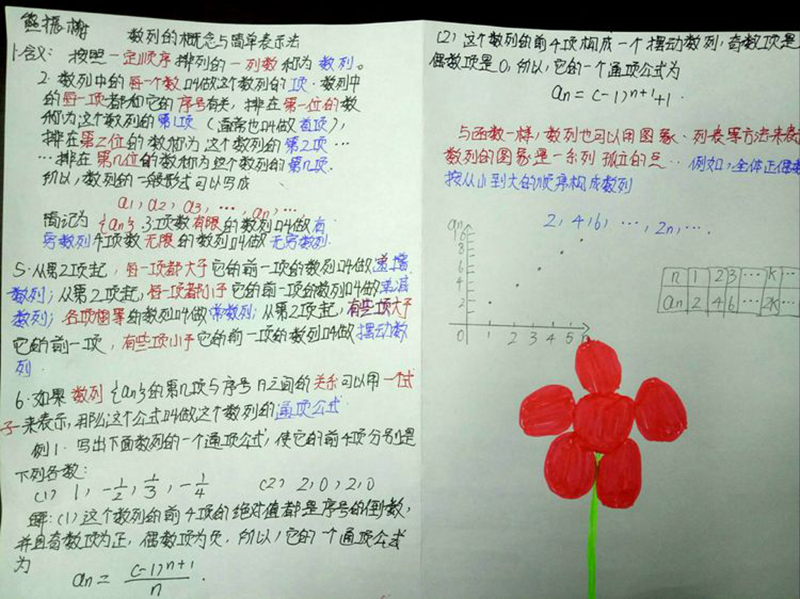 熊振梅
数列的概念与简单表示法
1.含义: 按照一定顺序排列的一列数称为数列。
2.数列中的每一个数叫做这个数列的项.数列中
的每一项都和它的序号有关,排在第一位的数
称为这个数列的第1项(通常也叫做首项),
排在第2位的数称为这个数列的第2项…
…排在第n位的数称为这个数列的第n项.
所以,数列的一般形式可以写成
a1, a2, a3, …, an, …
简记为{an} 3.项数有限的数列叫做有
穷数列 4.项数无限的数列叫做无穷数列.
5.从第2项起,每一项都大于它的前一项的数列叫做递增
数列;从第2项起,每一项都小于它的前一项的数列叫做递减
数列;各项相等的数列叫做常数列;从第2项起,有些项大于
它的前一项,有些项小于它的前一项的数列叫做摆动数
列.
6.如果数列{an}的第n项与序号n之间的关系可以用一个式
子来表示,那么这个公式叫做这个数列的通项公式.
例1.写出下面数列的一个通项公式,使它的前4项分别是
下列各数:
(1) 1, -1/2, 1/3, -1/4 (2) 2,0,2,0
解:(1)这个数列的前4项的绝对值都是序号的倒数,
并且奇数项为正,偶数项为负,所以,它的一个通项公式
为
an = (-1)n+1/n.
(2)这个数列的前4项构成一个摆动数列,奇数项是
偶数项是0,所以,它的一个通项公式为
an=(-1)n+1+1.
与函数一样,数列也可以用图象、列表等方法来表
数列的图象是一系列孤立的点..例如,全体正偶
按从小到大的顺序构成数列
2,4,6, …, 2n, …
an
10
8
6
4
2
0 1 2 3 4 5 n
n 1 2 3 … k …
an 2 4 6 … 2k …